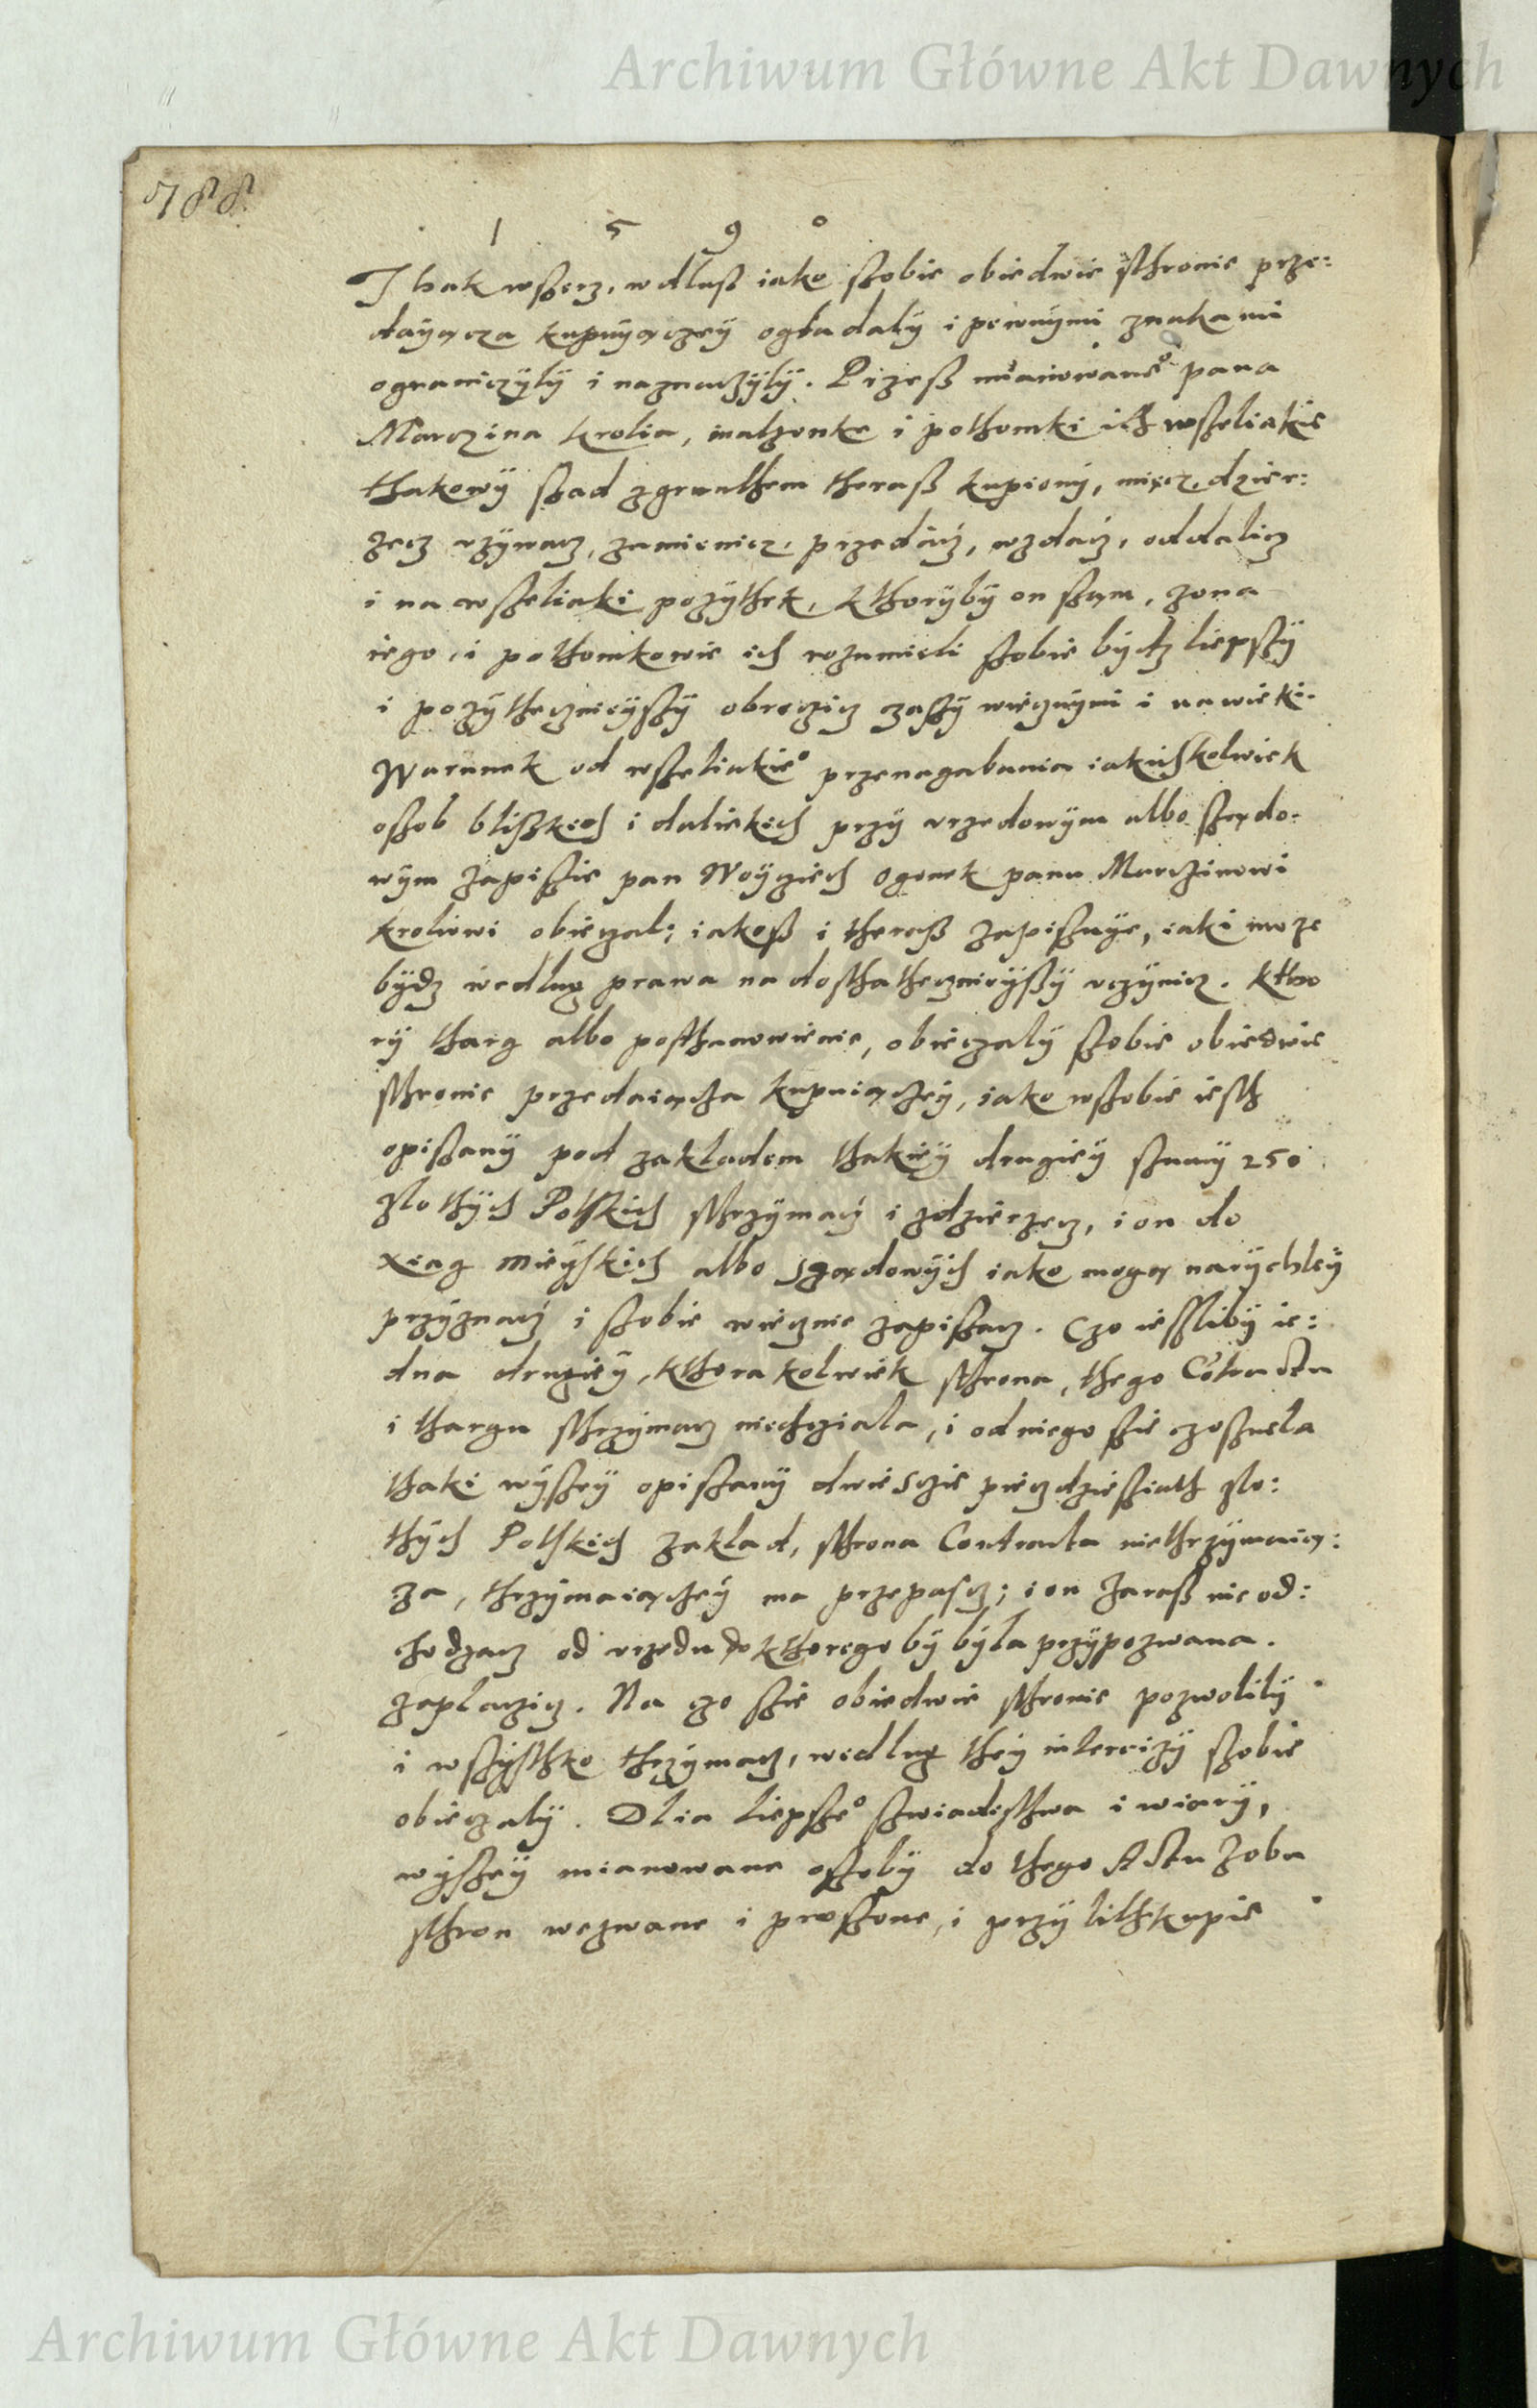 Archiwum Główne Akt Dawnych
788
1 5 9 0
Thak wszerz, wdlusz iako szobie obiedwie sthronie prze:
dayącza kupuyączey ogladaly i pewnymi znakami
ograniczyly i naznaczyly. Przesz mianowane° pana
Marczina Krolia, malzonke i pothomki ich wszeliakie
thakowy szad zgrunthem therasz kupiony, miecz, dzier:
zecz uzywacz, zamienicz, przedacz, wzdacz, oddalicz
i na wszeliaki pozythek, kthoryby on szam, zona
iego, i pothomkowie ich rozumieli szobie bydz liepszy
i pozythecznieyszy obroczicz czaszy wiecznymi i na wieki.
Warunek od wszeliakie° przenagabania iakichkolwiek
oszob bliszkich i daliekich przy urzedowym albo szędo-
wym zapiszie pan Woycziech Ogonek panu Marczinowi
Kroliowi obieczal; iakosz i therasz zapiszuye, iaki moze
bydz wedlug prawa na dosthathecznieyszy uczynicz. Ktho
ry tharg albo posthanowienie, obieczaly szobie obiedwie
sthronie przedaiącza kupuiączey, iako wszobie iesth
opiszany pod zakladem thakiey drugiey szumy 250
zlothych Polskich sthrzymacz i zdzierzecz, i on do
xiag mieyskich albo sządowych iako mogą narychley
przyznacz i szobie wiecznie zapiszacz. Czo iessliby ie:
dna drugiey, kthora kolwiek sthrona, thego Cotractu
i thargu sthrzymacz niechcziala, i od niego szie czosznela
thaki wyszey opiszany dwiesczie pieczdziesziath zlo:
thych Polskich zaklad, sthrona Contracta niethrzymaią:
cza, thrzymaiączey ma przepascz; i on zarasz nie od:
chodzacz od urzedu do kthorego by byla przypozwana.
zaplaczicz. Na czo szie obiedwie sthronie pozwolily
i wszysthko thrzymacz, wedlug they intercizy szobie
obieczaly. Dlia liepsze° szwiadecthwa i wiary,
wyszey mianowane oszoby do thego Actu zobu
sthron wezwane i proszone, i przy lithkupie
Archiwum Główne Akt Dawnych